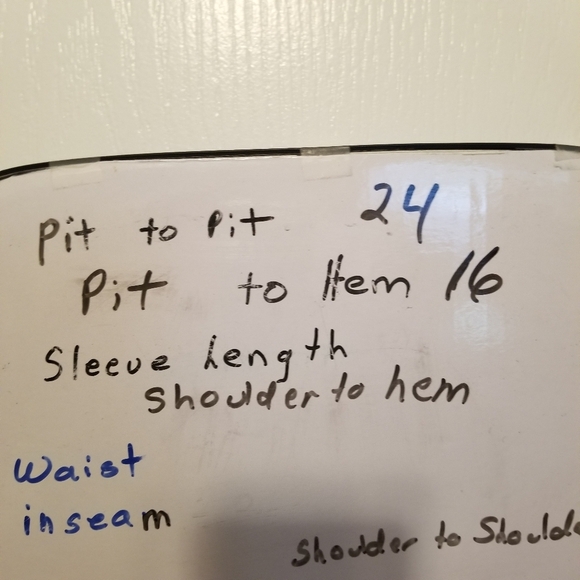 Pit to Pit 24
Pit to Hem 16
Sleeve Length
Shoulder to hem
Waist
inseam
Shoulder to Shoulde